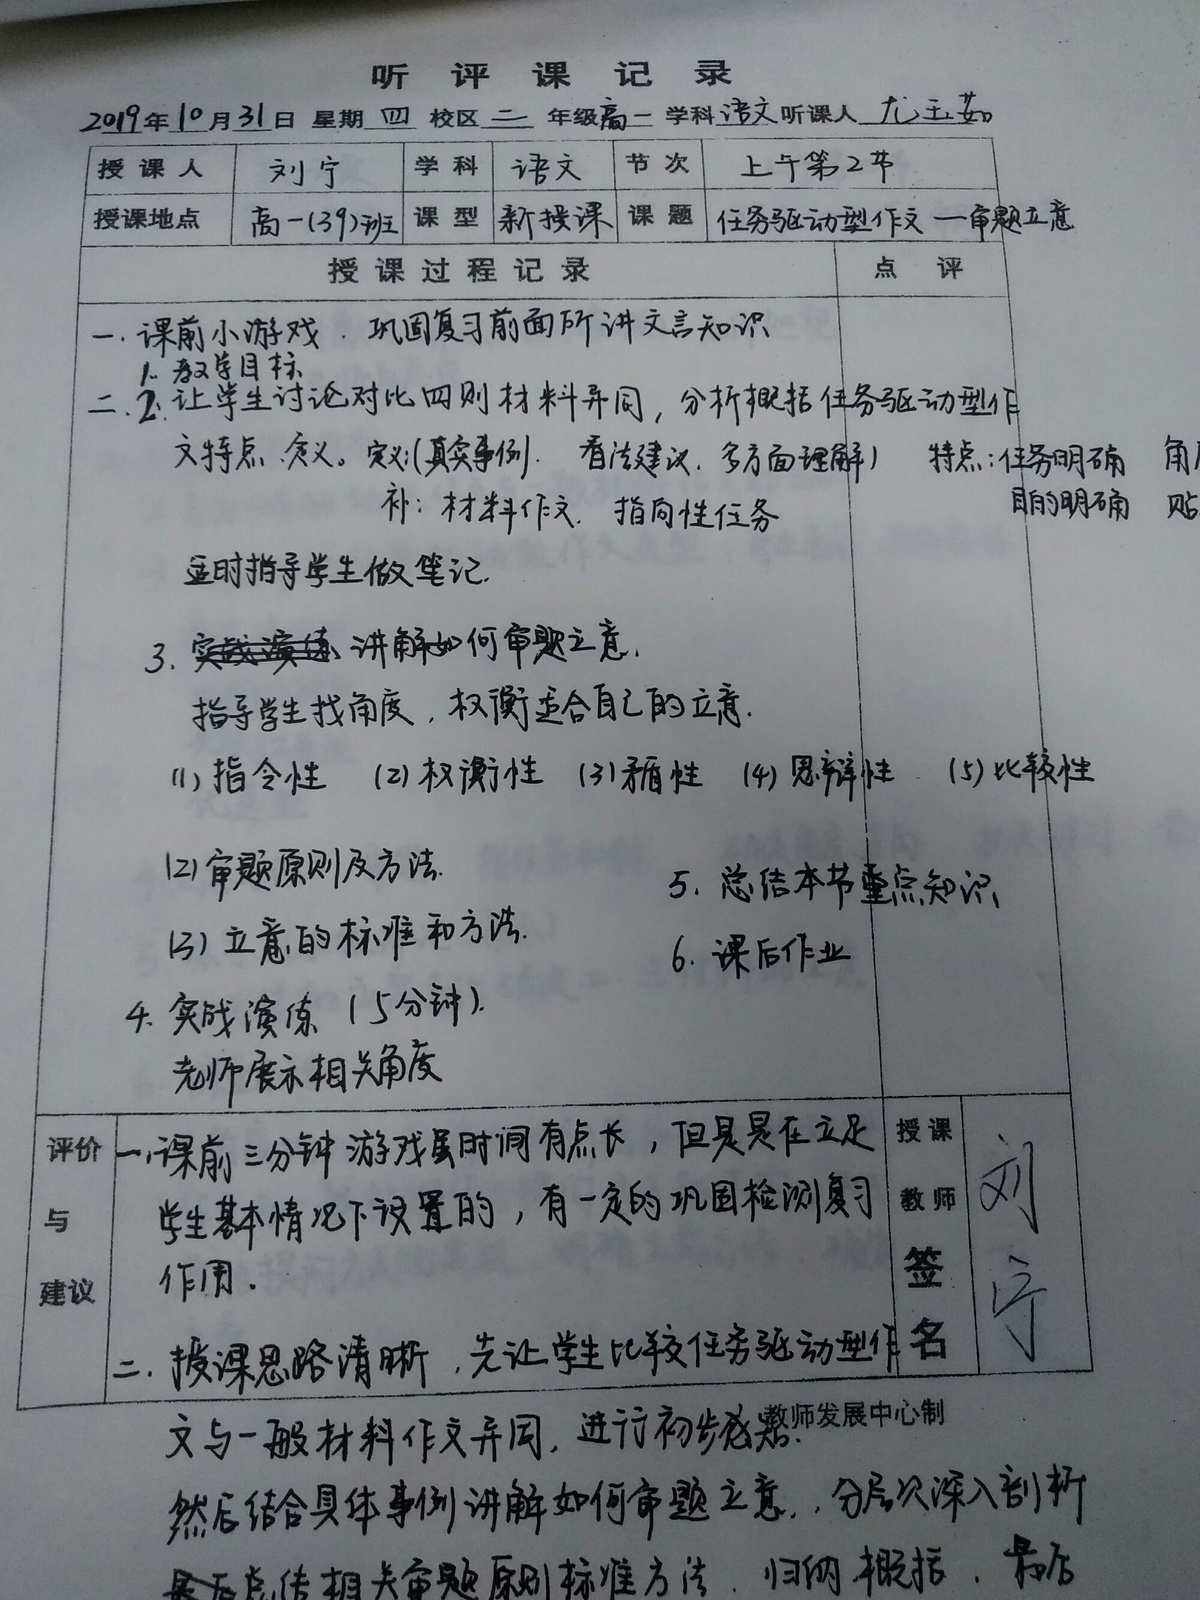 听评课记录
2019年10月31日 星期四 校区二 年级高一 学科语文 听课人 尤玉茹
授课人 刘宁 学科 语文 节次 上午第2节
授课地点 高一(39)班 课型 新授课 课题 任务驱动型作文—审题立意
授课过程记录 点评
一.课前小游戏.巩固复习前面所讲文言知识
1.教学目标
二.2.让学生讨论对比四则材料异同,分析概括任务驱动型作
文特点.含义。定义:(真实事例). 看法建议.多方面理解) 特点:任务明确 角
补:材料作文.指向性任务 目的明确 贴
适时指导学生做笔记.
3. 讲解如何审题立意.
指导学生找角度,权衡适合自己的立意.
(1)指令性 (2)权衡性 (3)矛盾性 (4)思辩性 (5)比较性
(2)审题原则及方法.
5.总结本节重点知识
(3)立意的标准和方法.
6.课后作业
4.实战演练(5分钟).
老师展示相关角度
评价与建议
一.课前三分钟游戏虽时间有点长,但是是在立足
学生基本情况下设置的,有一定的巩固检测复习
作用.
二.授课思路清晰,先让学生比较任务驱动型作
授课教师签名 刘宁
教师发展中心制
文与一般材料作文异同,进行初步感知.
然后结合具体事例讲解如何审题立意,.分层次深入剖析
总结相关审题原则标准方法.归纳概括.最后